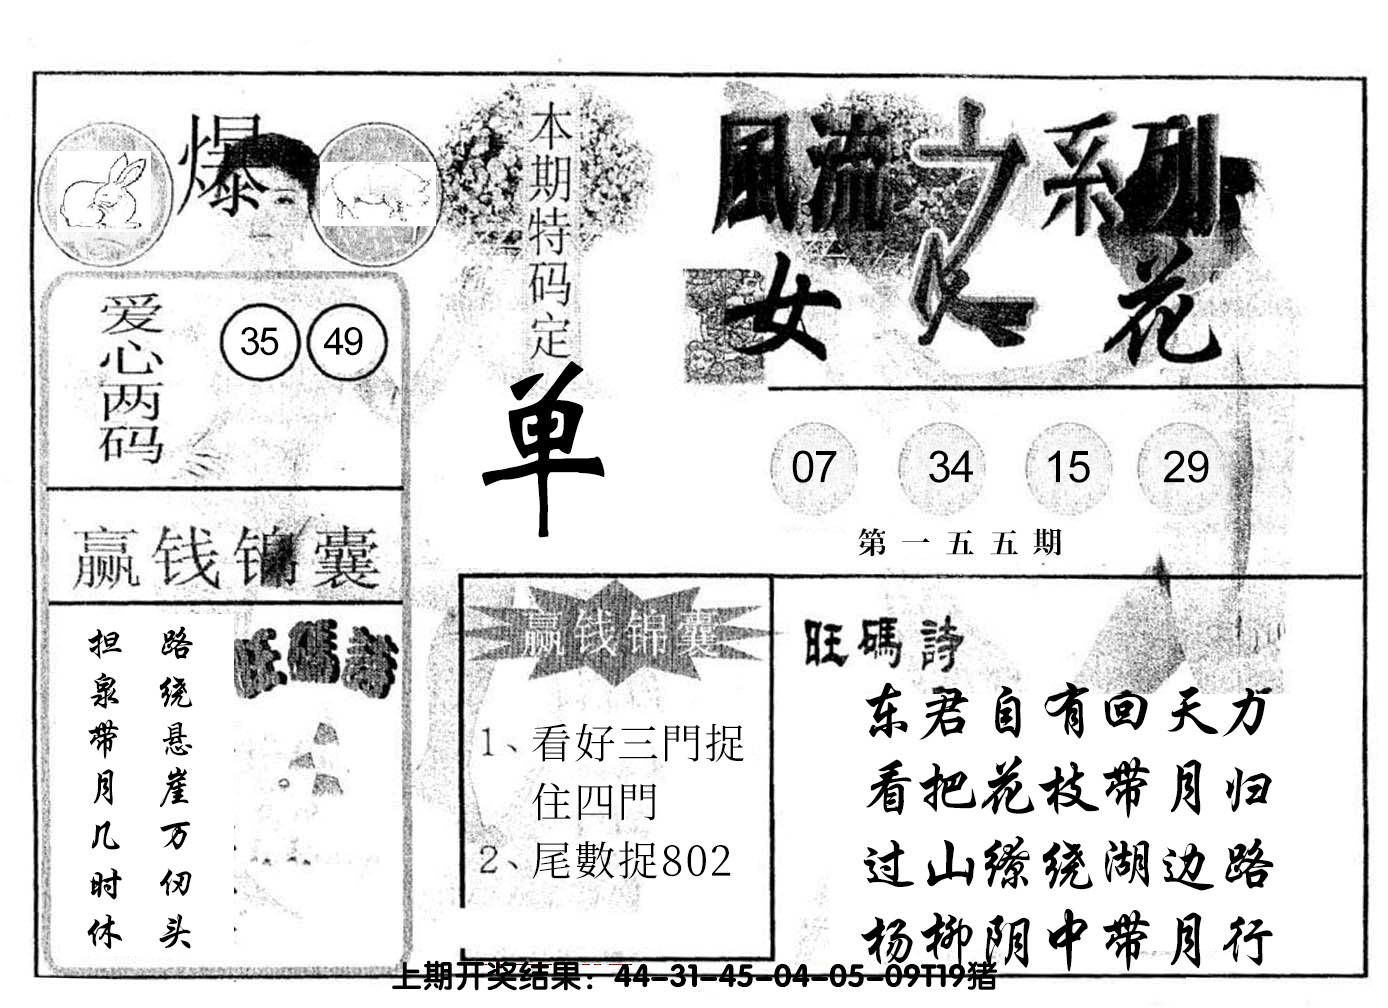 爆
本期特码定
单
風流之系列
女人花
爱心两码
35 49
07 34 15 29
第一五五期
赢钱锦囊
路绕悬崖万仞头
担泉带月几时休
旺碼詩
赢钱锦囊
1、看好三門捉
住四門
2、尾數捉802
旺碼詩
东君自有回天力
看把花枝带月归
过山缭绕湖边路
杨柳阴中带月行
上期开奖结果：44-31-45-04-05-09T19猪